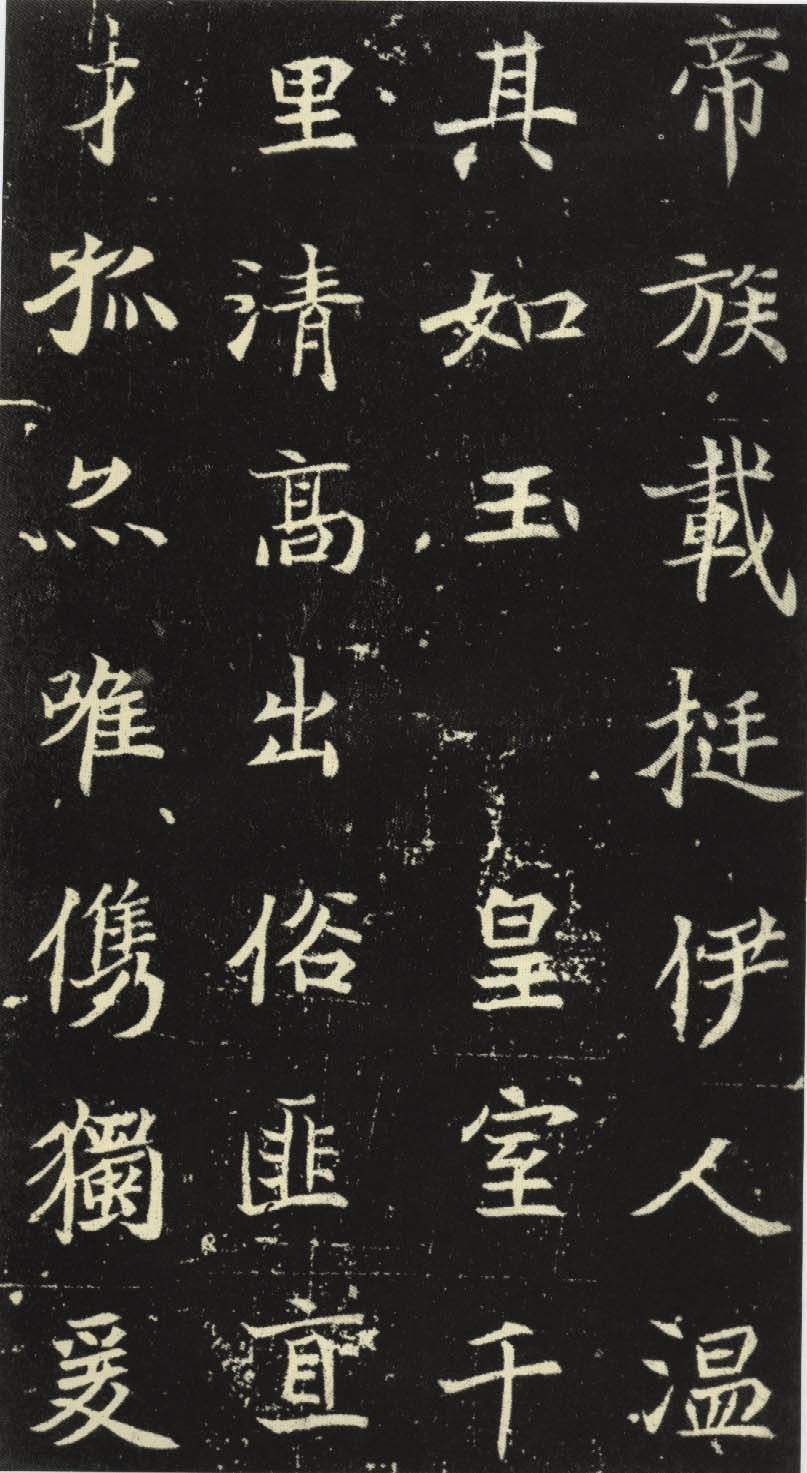 帝族載挺伊人温
其如玉 皇室千
里清高出俗匪直
才孤唯儁獨爰